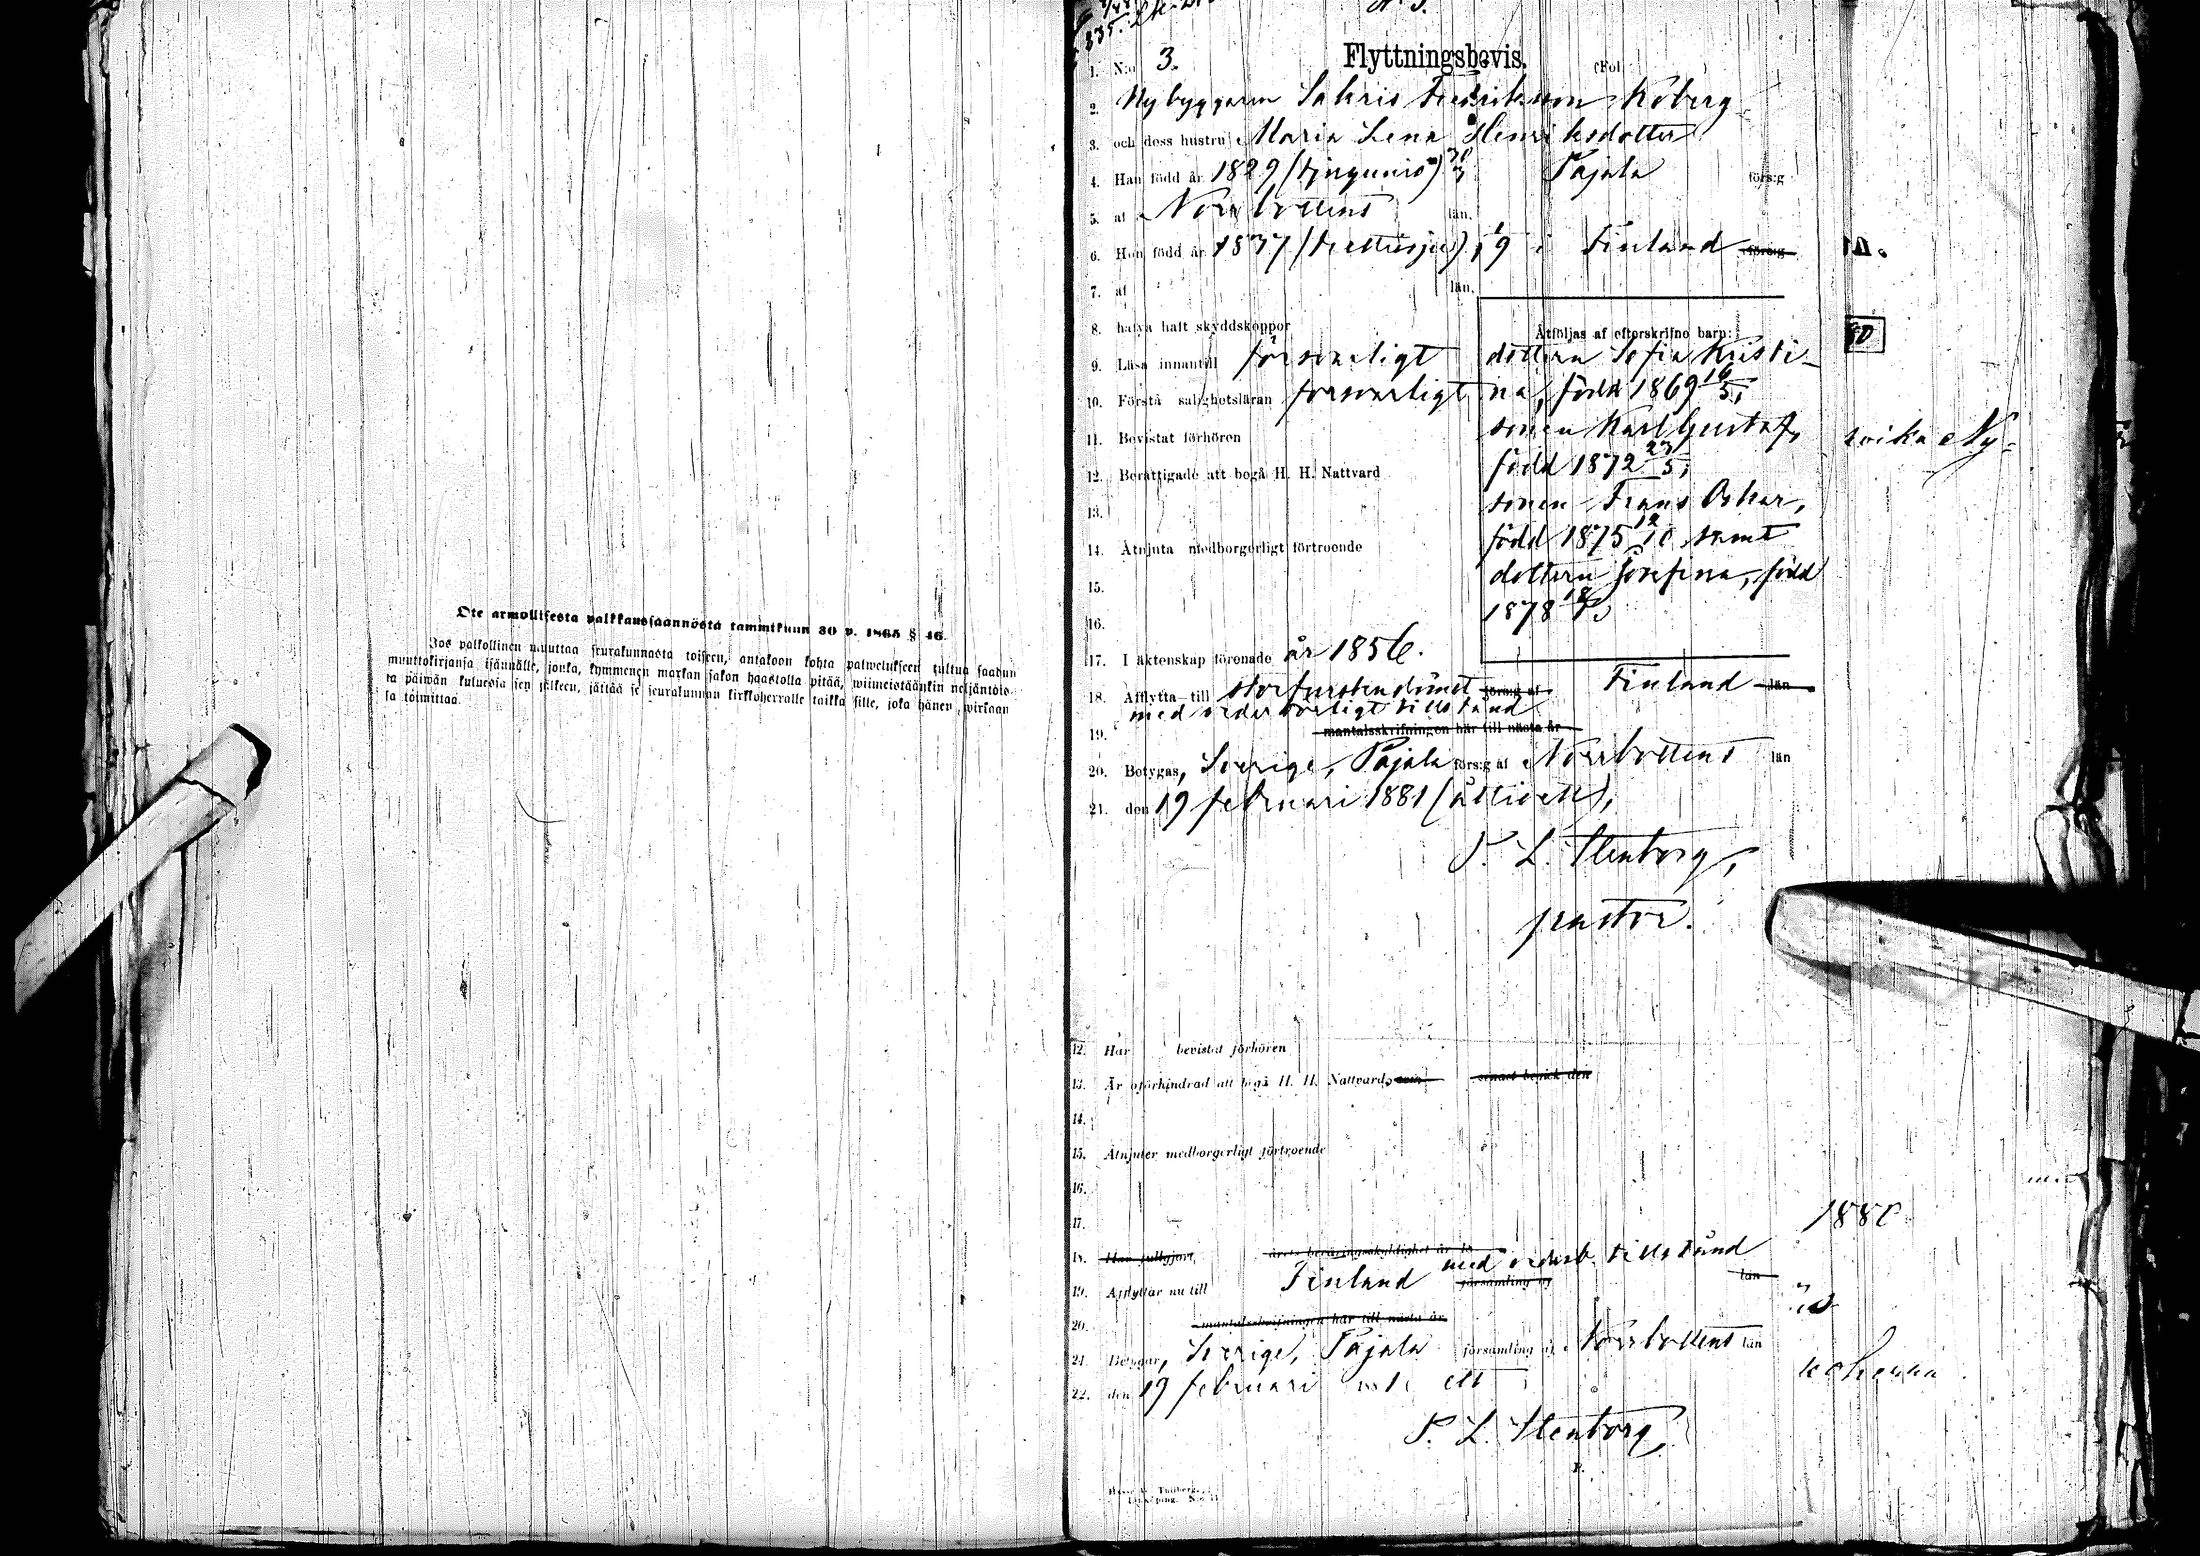 Ote armollisesta palkkaussäännöstä tammikuun 30 p. 1865 § 46.
Jos palkollinen muuttaa seurakunnasta toiseen, antakoon kohta palwelukseen tultua saadun
muuttokirjansa isännälle, jonka, kymmenen markan sakon haastolla pitää, wiimeistäänkin neljäntöis-
ta päiwän kuluessa sen jälkeen, jättää se seurakunnan kirkkoherralle taikka sille, joka hänen wirkaan
sa toimittaa.
835.
Flyttningsbevis.
1. N:o 3. (Fol
2. Nybyggaren Sakris Fredriksson Koberg
3. och dess hustru Maria Lena Henriksdotter
4. Han född år 1829 (tjugunio) 30/3 Pajala förs:g
5. af Norrbottens län.
6. Hon född år 1837 (trettiosju) 1/9 i Finland förs:g
7. af län.
8. hafva haft skyddskoppor
Åtföljas af efterskrifne barn:
9. Läsa innantill försvarligt
dottern Sofia Kristi-
10. Förstå salighetsläran försvarligt
na, född 1869 16/5,
11. Bevistat förhören
sonen Karl Gustaf,
12. Berättigade att begå H. H. Nattvard
född 1872 23/5,
13.
sonen Frans Oskar,
14. Åtnjuta medborgerligt förtroende
född 1875 12/10 samt
15.
dottern Josefina, född
16.
1878
17. I äktenskap förenade år 1856.
18. Afflytta till storfurstendömet förs:g af Finland län
med vederbörligt tillstånd
19. mantalsskrifningen här till nästa år
20. Betygas, Sverige, Pajala förs:g af Norrbottens län
21. den 19 februari 1881 (åttioett),
P. L. Stenborg,
pastor.
12. Har bevistat förhören
13. Är oförhindrad att begå H. H. Nattvard, senast begick den
14.
15. Åtnjuter medborgerligt förtroende
16.
17.
18. Han fullgjort årets beväringsskyldighet år 18
med vederb. tillstånd
19. Afflyttar nu till Finland församling af län
20. mantalsskrifningen här till nästa år
21. Betygar, Sverige, Pajala församling af Norrbottens län
22. den 19 februari ett
P. L. Stenborg,
P.
80
Ny-
1880